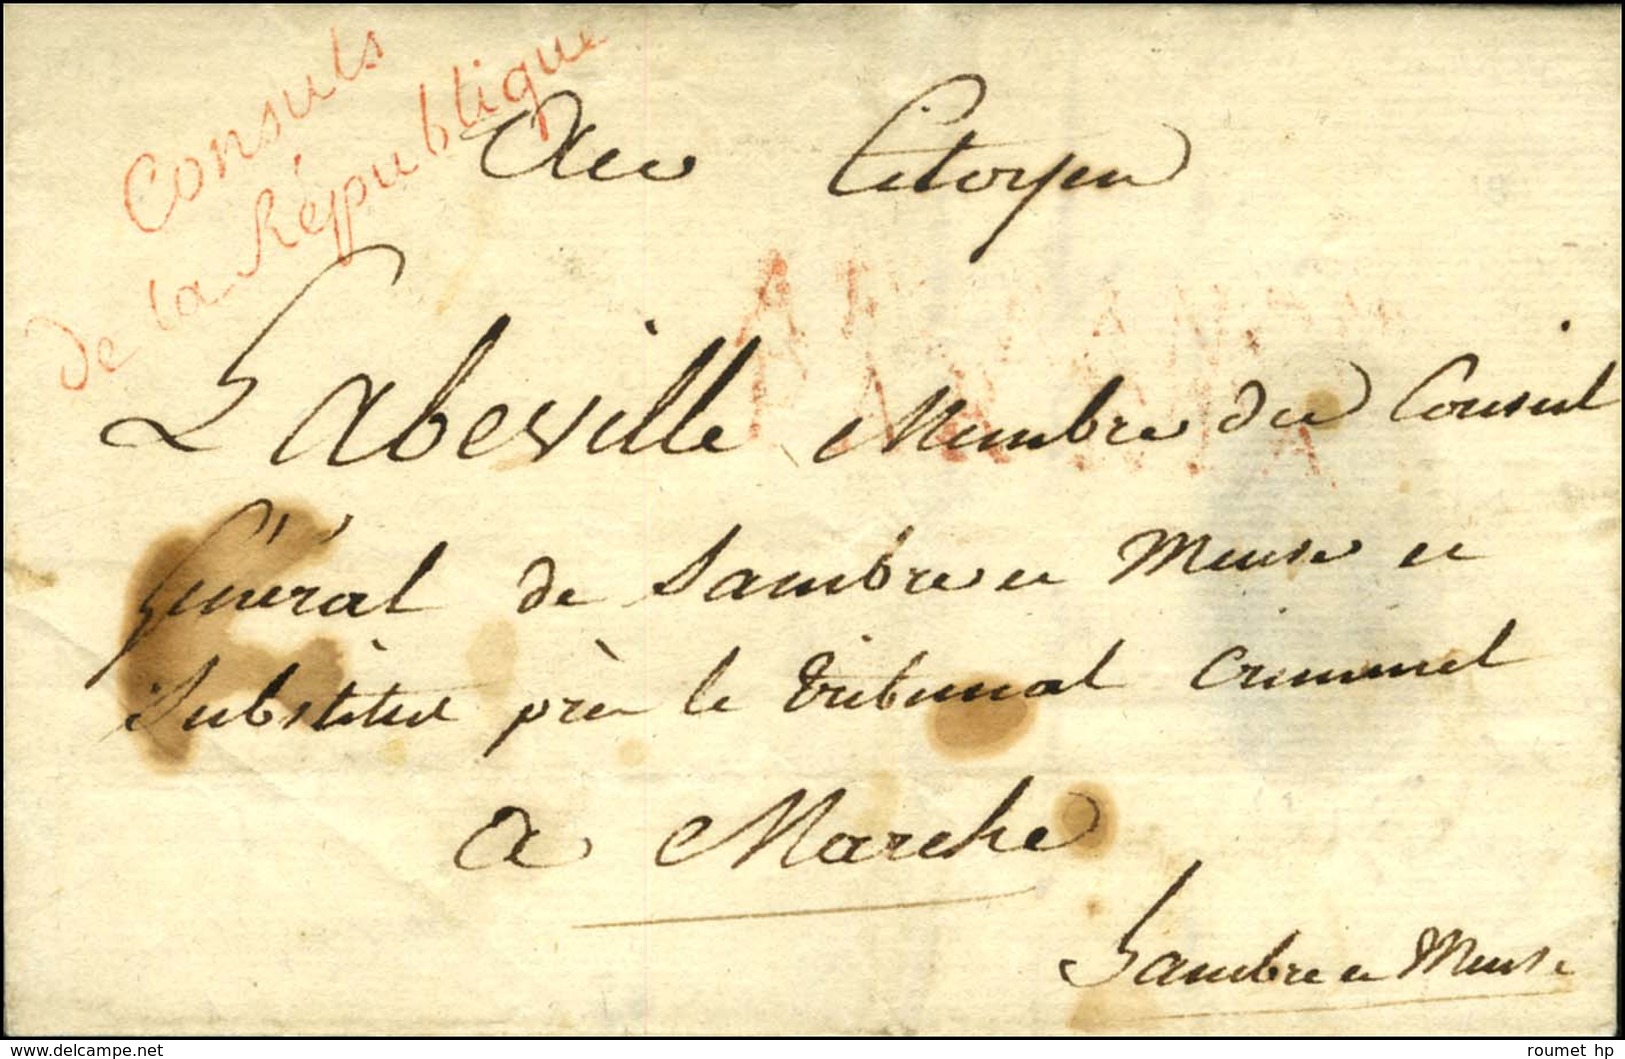 Consuls
de la République
Au Citoyen
Labeville Membre du Conseil
Général de Sambre et Meuse et
Substitut près le Tribunal Criminel
a Marche
Sambre et Meuse
www.delcampe.net
roumet hp